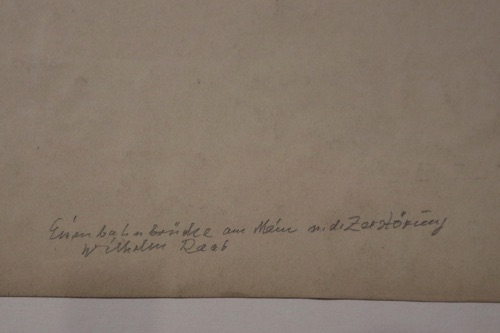 Eisenbahnbrücke am Main n. d. Zerstörung
Wilhelm Raab